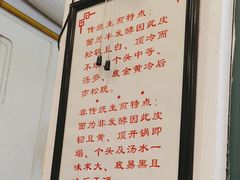 传统生煎特点：
面为半发酵因此皮
松软且白、顶冷而
不塌、个头中等、
汤多、底金黄冷后
亦松脆。
非传统生煎特点：
面为非发酵因此皮
韧且黄、顶开锅即
塌、个头及汤水一
味求大、底易黑且